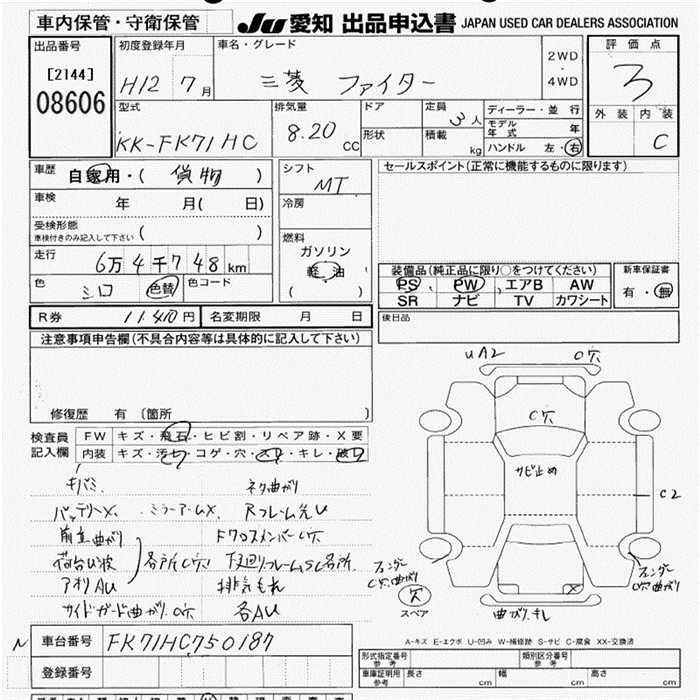 車内保管・守衛保管 JU 愛知 出品申込書 JAPAN USED CAR DEALERS ASSOCIATION
出品番号 初度登録年月 車名・グレード 評価点
[2144] H12 7月 三菱 ファイター 2WD・4WD 3
08606
型式 排気量 ドア 定員 ディーラー・並行 外装 内装
KK-FK71HC 8.20 cc 3人 モデル年式 年 C
形状 積載 kg ハンドル 左・右
車歴 自家用・(貨物) シフト MT セールスポイント(正常に機能するものに限ります)
車検 年 月( 日) 冷房
受検形態 ( )
車検付きのみ記入して下さい
燃料
走行 6万4千748km ガソリン
軽油
( )
装備品(純正品に限り○をつけてください) 新車保証書
色 シロ 色替 色コード PS PW エアB AW 有・無
SR ナビ TV カワシート
R券 11,410円 名変期限 月 日 後日品
注意事項申告欄(不具合内容等は具体的に記入して下さい)
修復歴 有 (箇所 )
検査員記入欄 FW キズ・飛石・ヒビ割・リペア跡・X要
内装 キズ・汚れ・コゲ・穴・スレ・キレ・破レ
キバミ ネタ曲がり
バッテリーX、ミラーアームX、Rフレーム先U
前立曲がり Fクロスメンバー C穴
荷台U波 各所C穴 下廻りフレームSC各所
アオリAU 排気もれ
サイドガード曲がり O穴 各AU
UA2 O穴
C穴
サビ止め
C2
フェンダー C穴曲がり
フェンダー C穴曲がり
穴 X
スペア
曲がり、キレ
A-キズ E-エクボ U-凹み W-補修跡 S-サビ C-腐食 XX-交換済
N 車台番号 FK71HC750187
登録番号
形式指定番号 参考 類別区分番号 参考
車庫証明用 参考 長さ cm 幅 cm 高さ cm